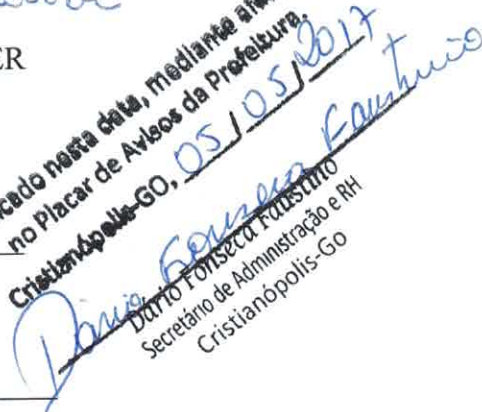 ER
nesta data, mediante
no Placar de Avisos da Prefeitura.
Cristianópolis-GO, 05/05/2017
Dário Fonseca Faustino
Dário Fonseca Faustino
Secretário de Administração e RH
Cristianópolis-Go